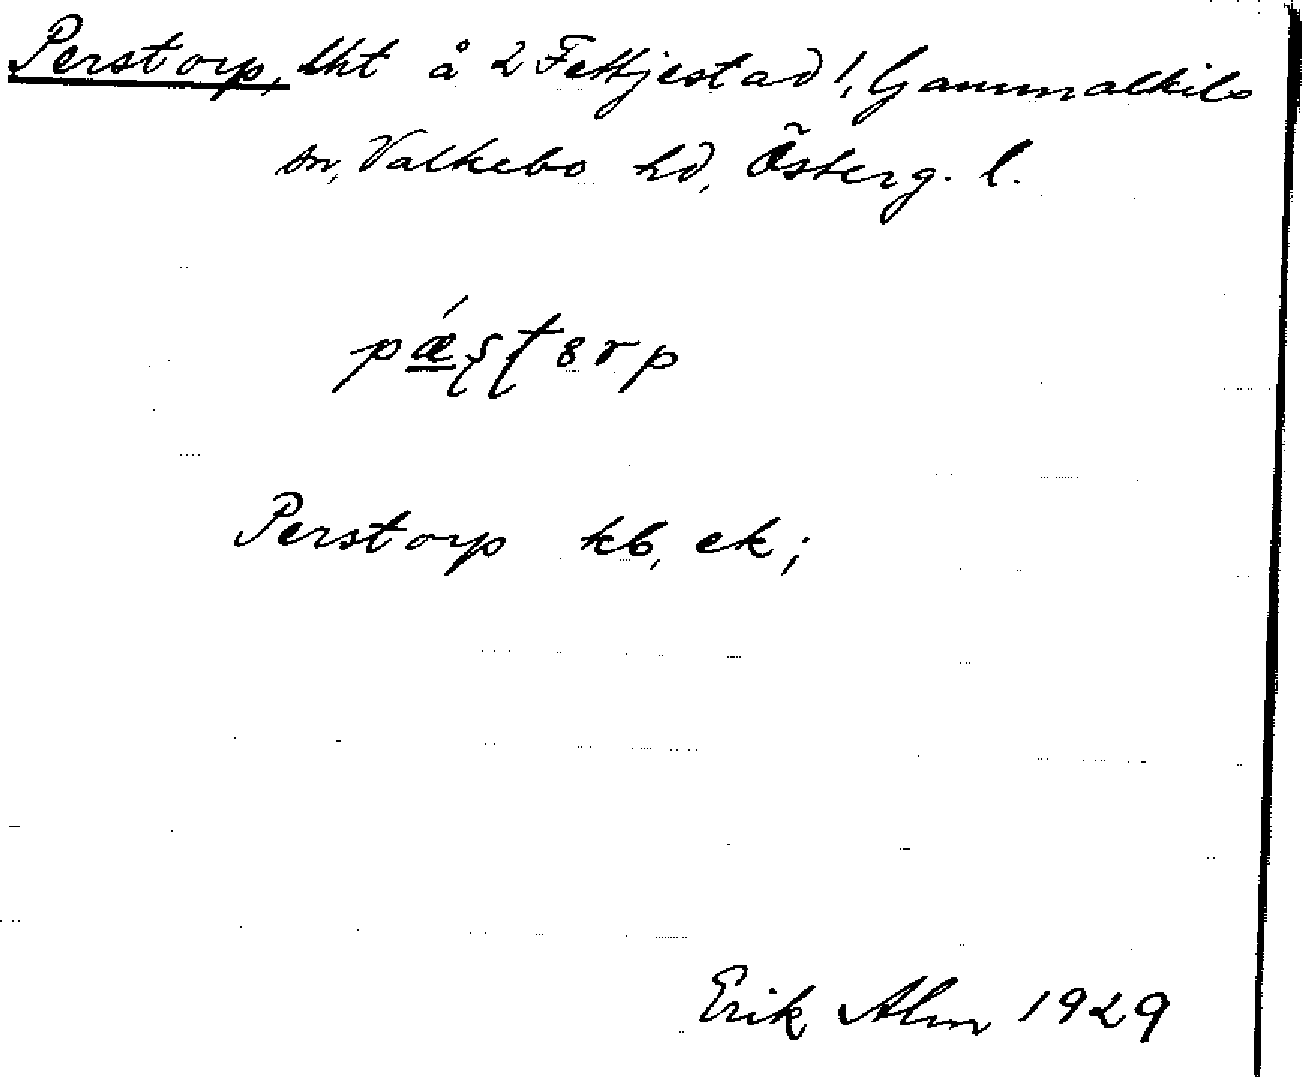 Perstorp, lht å 2 Fettjestad!, Gammalkils
sn, Valkebo hd, Österg. l.
pǽṣṭ8rp
Perstorp kb, ek;
Erik Alm 1929